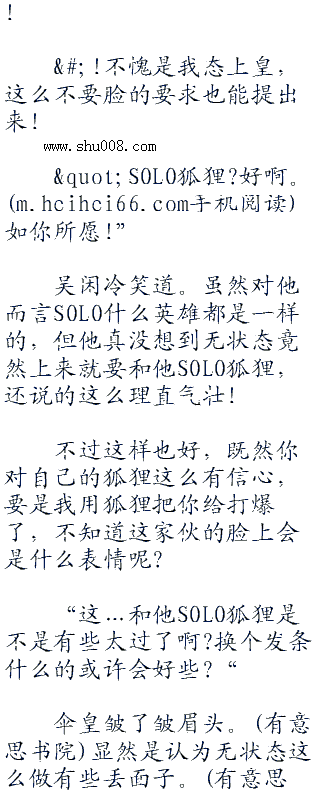 !
&#;!不愧是我态上皇，
这么不要脸的要求也能提出
来!
www.shu008.com
&quot;SOLO狐狸?好啊。
(m.hcihci66.com手机阅读)
如你所愿!”
吴闲冷笑道。虽然对他
而言SOLO什么英雄都是一样
的，但他真没想到无状态竟
然上来就要和他SOLO狐狸，
还说的这么理直气壮!
不过这样也好，既然你
对自己的狐狸这么有信心，
要是我用狐狸把你给打爆
了，不知道这家伙的脸上会
是什么表情呢?
“这…和他SOLO狐狸是
不是有些太过了啊?换个发条
什么的或许会好些?“
伞皇皱了皱眉头。(有意
思书院)显然是认为无状态这
么做有些丢面子。(有意思